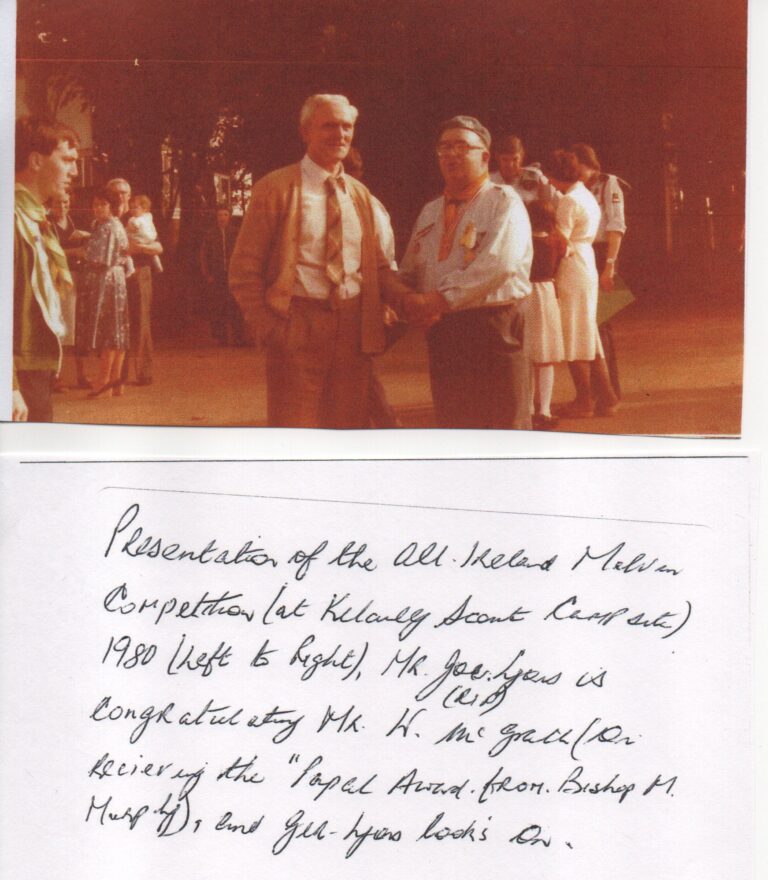 Presentation of the All-Ireland Melvin
Competition (at Kilcully Scout Camp site)
1980 (Left to Right), Mr. Joe. Lyons is
(RIP)
congratulating Mr. W. McGrath (On
recieving the "Papal Award. from. Bishop M.
Murphy), and Ger-Lyons looks On.